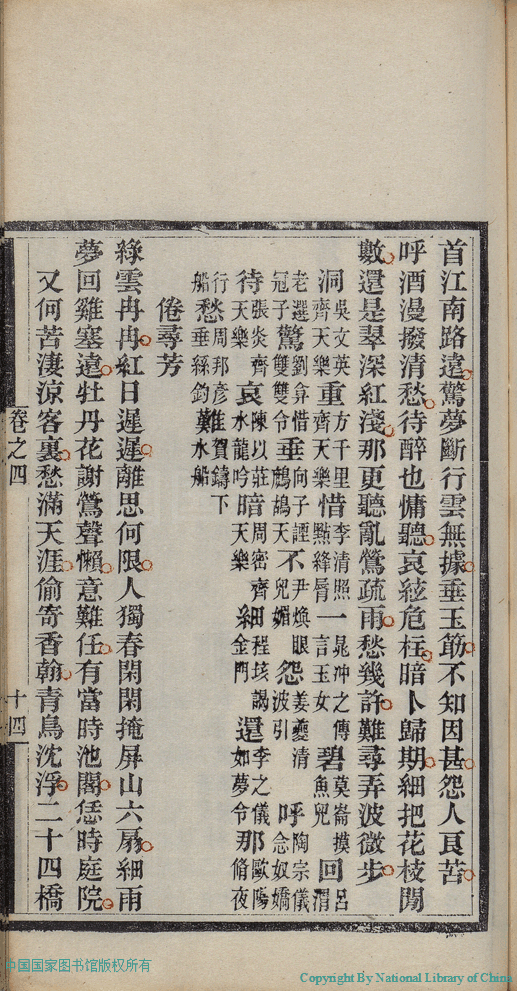 首江南路遠驚夢斷行雲無據垂玉筯不知因甚怨人良苦
呼酒漫撥清愁待醉也慵聽哀絃危柱暗卜歸期細把花枝閒
數還是翠深紅淺那更聽亂鶯疏雨愁幾許難尋弄波微步
洞吳文英齊天樂重方千里齊天樂惜李清照點絳脣一晁冲之傳言玉女碧莫崙摸魚兒回呂渭
老選冠子驚劉弇惜雙雙令垂向子諲鷓鴣天不尹煥眼兒媚怨姜夔清波引呼陶宗儀念奴嬌
待張炎齊天樂哀陳以莊水龍吟暗周密齊天樂細程垓謁金門還李之儀如夢令那歐陽脩夜
行船愁周邦彥垂絲釣難賀鑄下水船
倦尋芳
綠雲冉冉紅日遲遲離思何限人獨春閑閑掩屏山六扇細雨
夢回雞塞遠牡丹花謝鶯聲懶意難任有當時池閣恁時庭院
又何苦淒涼客裏愁滿天涯偷寄香翰青鳥沈浮二十四橋
卷之四
十四
中国国家图书馆版权所有
Copyright By National Library of China